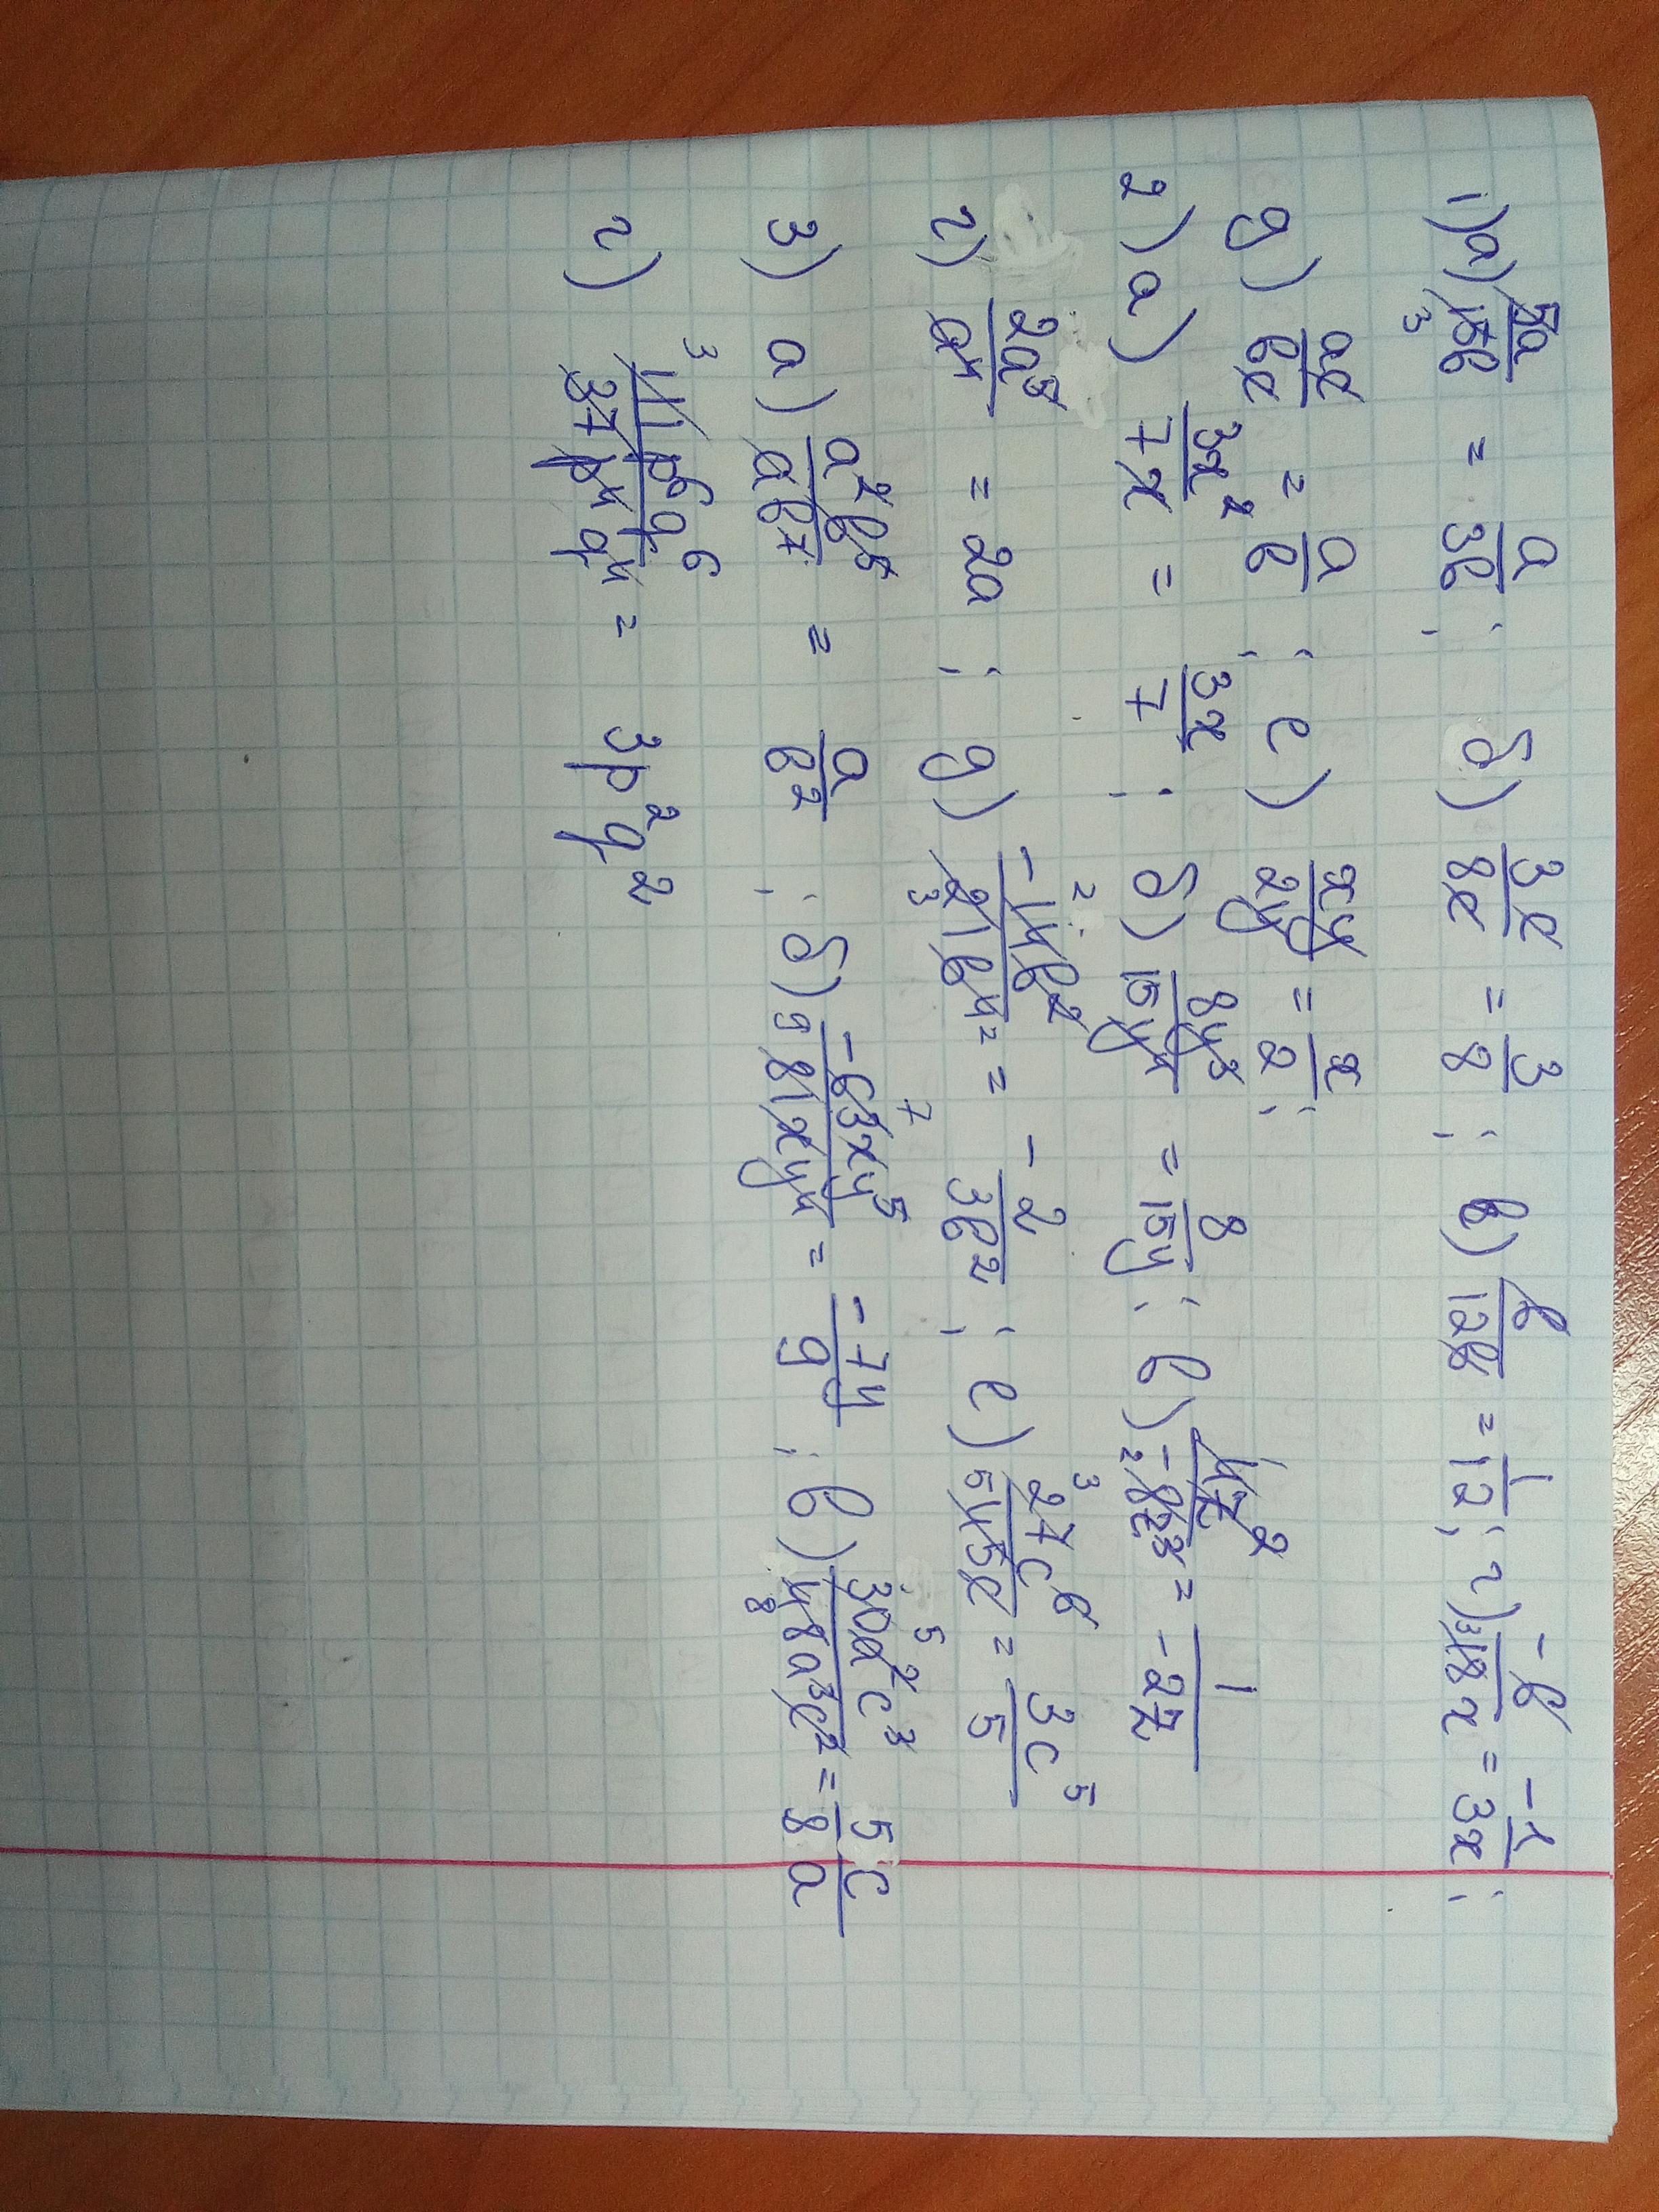 1) а) 5a/15b = a/3b ; б) 3c/8c = 3/8 ; в) b/12b = 1/12 ; г) -6/18x = -1/3x ;
д) ac/bc = a/b ; е) xy/2y = x/2 ;
2) а) 3x²/7x = 3x/7 ; б) 8y³/15y⁴ = 8/15y ; в) 4z²/-8z³ = 1/-2z
г) 2a⁵/a⁴ = 2a ; д) -14b²/21b⁴ = -2/3b² ; е) 27c⁶/45c = 3c⁵/5
3) а) a²b⁵/ab⁷ = a/b² ; б) -63xy⁵/81xy⁴ = -7y/9 ; в) 30a²c³/48a³c² = 5c/8a
г) 111p⁶q⁶/37p⁴q⁴ = 3p²q²